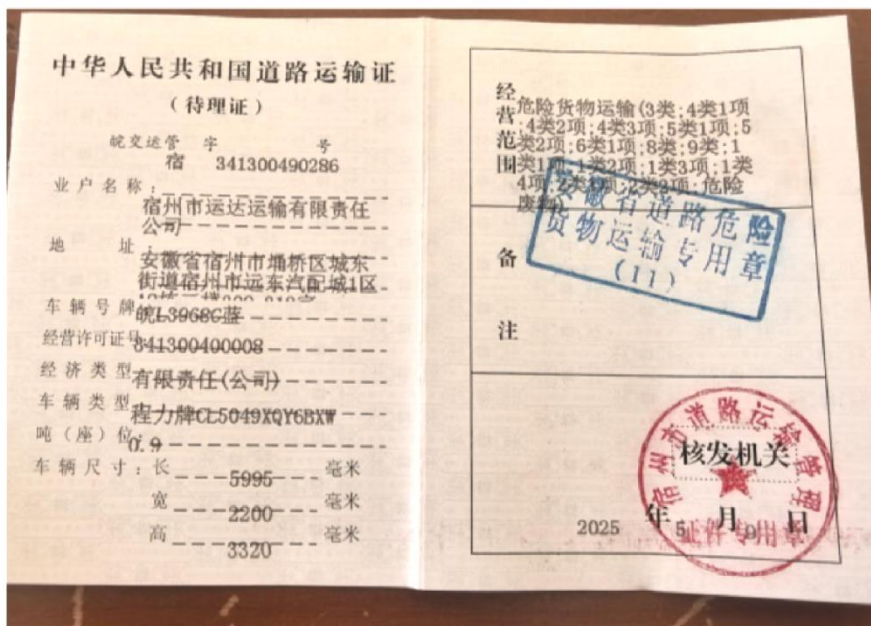 中华人民共和国道路运输证
（待理证）
皖交运管 字 号
宿 341300490286
业户名称：
宿州市运达运输有限责任
公司
地 址：
安徽省宿州市埇桥区城东
街道宿州市远东汽配城1区
车辆号牌 皖L3968G蓝
经营许可证号 341300400008
经济类型 有限责任(公司)
车辆类型 程力牌CL5049XQY6BXW
吨（座）位：0.9
车辆尺寸：长 5995 毫米
宽 2200 毫米
高 3320 毫米
经营范围
危险货物运输(3类;4类1项
;4类2项;4类3项;5类1项;5
类2项;6类1项;8类;9类;1
类1项;1类2项;1类3项;1类
4项;2类1项;2类2项;危险
废物)
安徽省道路危险
货物运输专用章
(11)
备注
宿州市道路运输管理
核发机关
2025 年 5 月 9 日